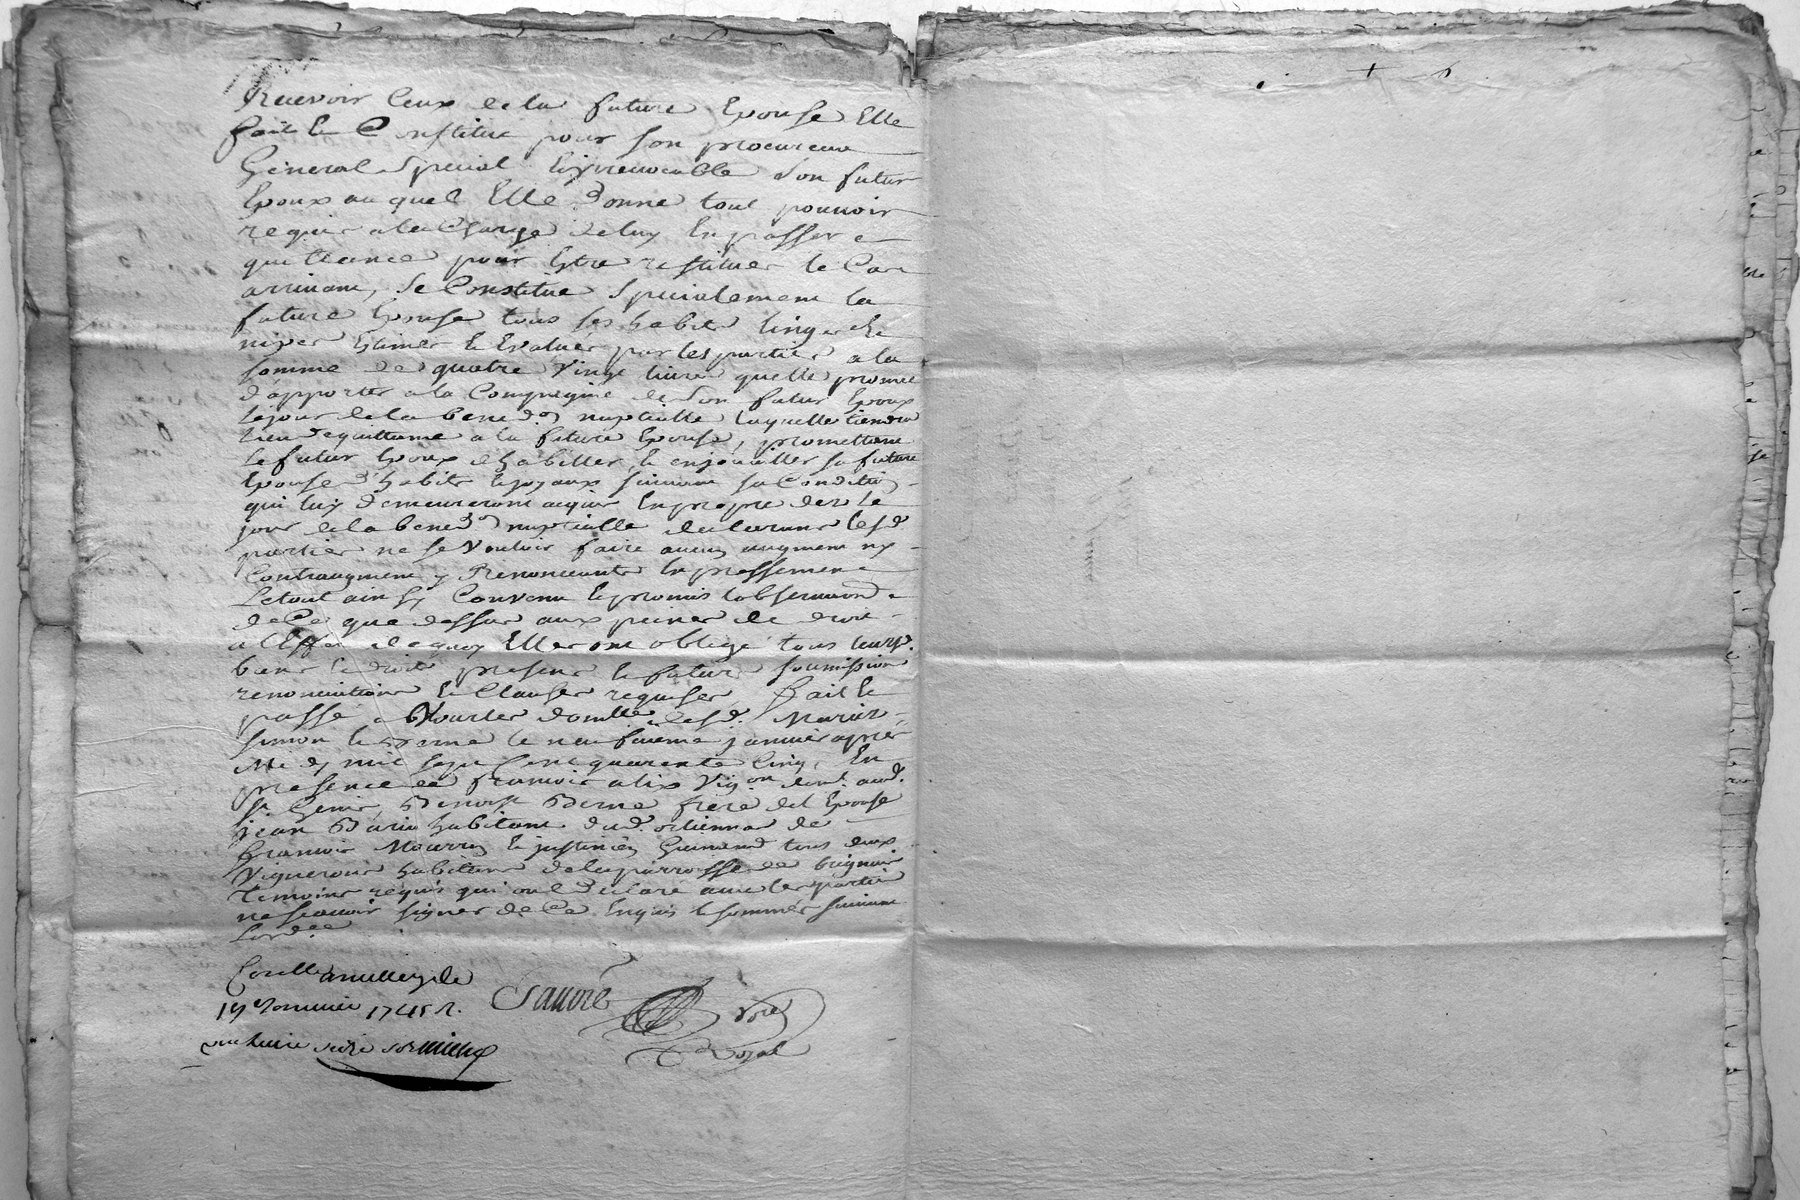 Recevoir Ceux de la future Epouse Elle
fait Et Constitue pour son procureur
General Special Et irrevocable son futur
Epoux au quel Elle Donne tout pouvoir
requis a la Charge de luy En passer
quittance pour Estre restituer le Cas
arrivant, Se Constitue Specialement la
future Epouse tous ses habits linge
Estimer Et Evaluer par les parties a la
somme de quatre Vingt livres quelle promet
d'apporter a la Compagnie de son futur Epoux
le jour de la bened.on nuptialle laquelle tiendra
lieu de quittance a la future Epouse, promettant
le futur Epoux d'habiller Et enjoailler sa future
Epouse d'habits Et joyaux suivant sa Condition
qui luy demeureront acquis En propre des le
jour de la bened.on nuptialle declarant lesd.
parties ne se Vouloir faire aucun augment ny
Contraugment y Renonceants Expressement
Le tout ainsy Convenu Et promis l'observation
de Ce que dessus aux peines de droit
a l'Effet de quoy Elles ont obligé tous leurs
biens Et droits presens Et futurs soumissions
renonciations Et Clauses requises fait Et
passé a domille desd. Mariez
Simon Et Berne le neufvieme janvier apres
Midy mil sept Cent quarante Cinq, En
presence de francois alix Vig.on dem.t aud.
S.t Genis Benoist Berne frere de l'Epouse
jean habitant dud.
francois Et tous deux
Vignerons habitans de la parroisse de brignais
temoins requis qui ont declaré avec les parties
ne scavoir signer de Ce Enquis Et sommés suivant
L'ord.ce
Conll a Millery le
19e Janvier 1745 R.